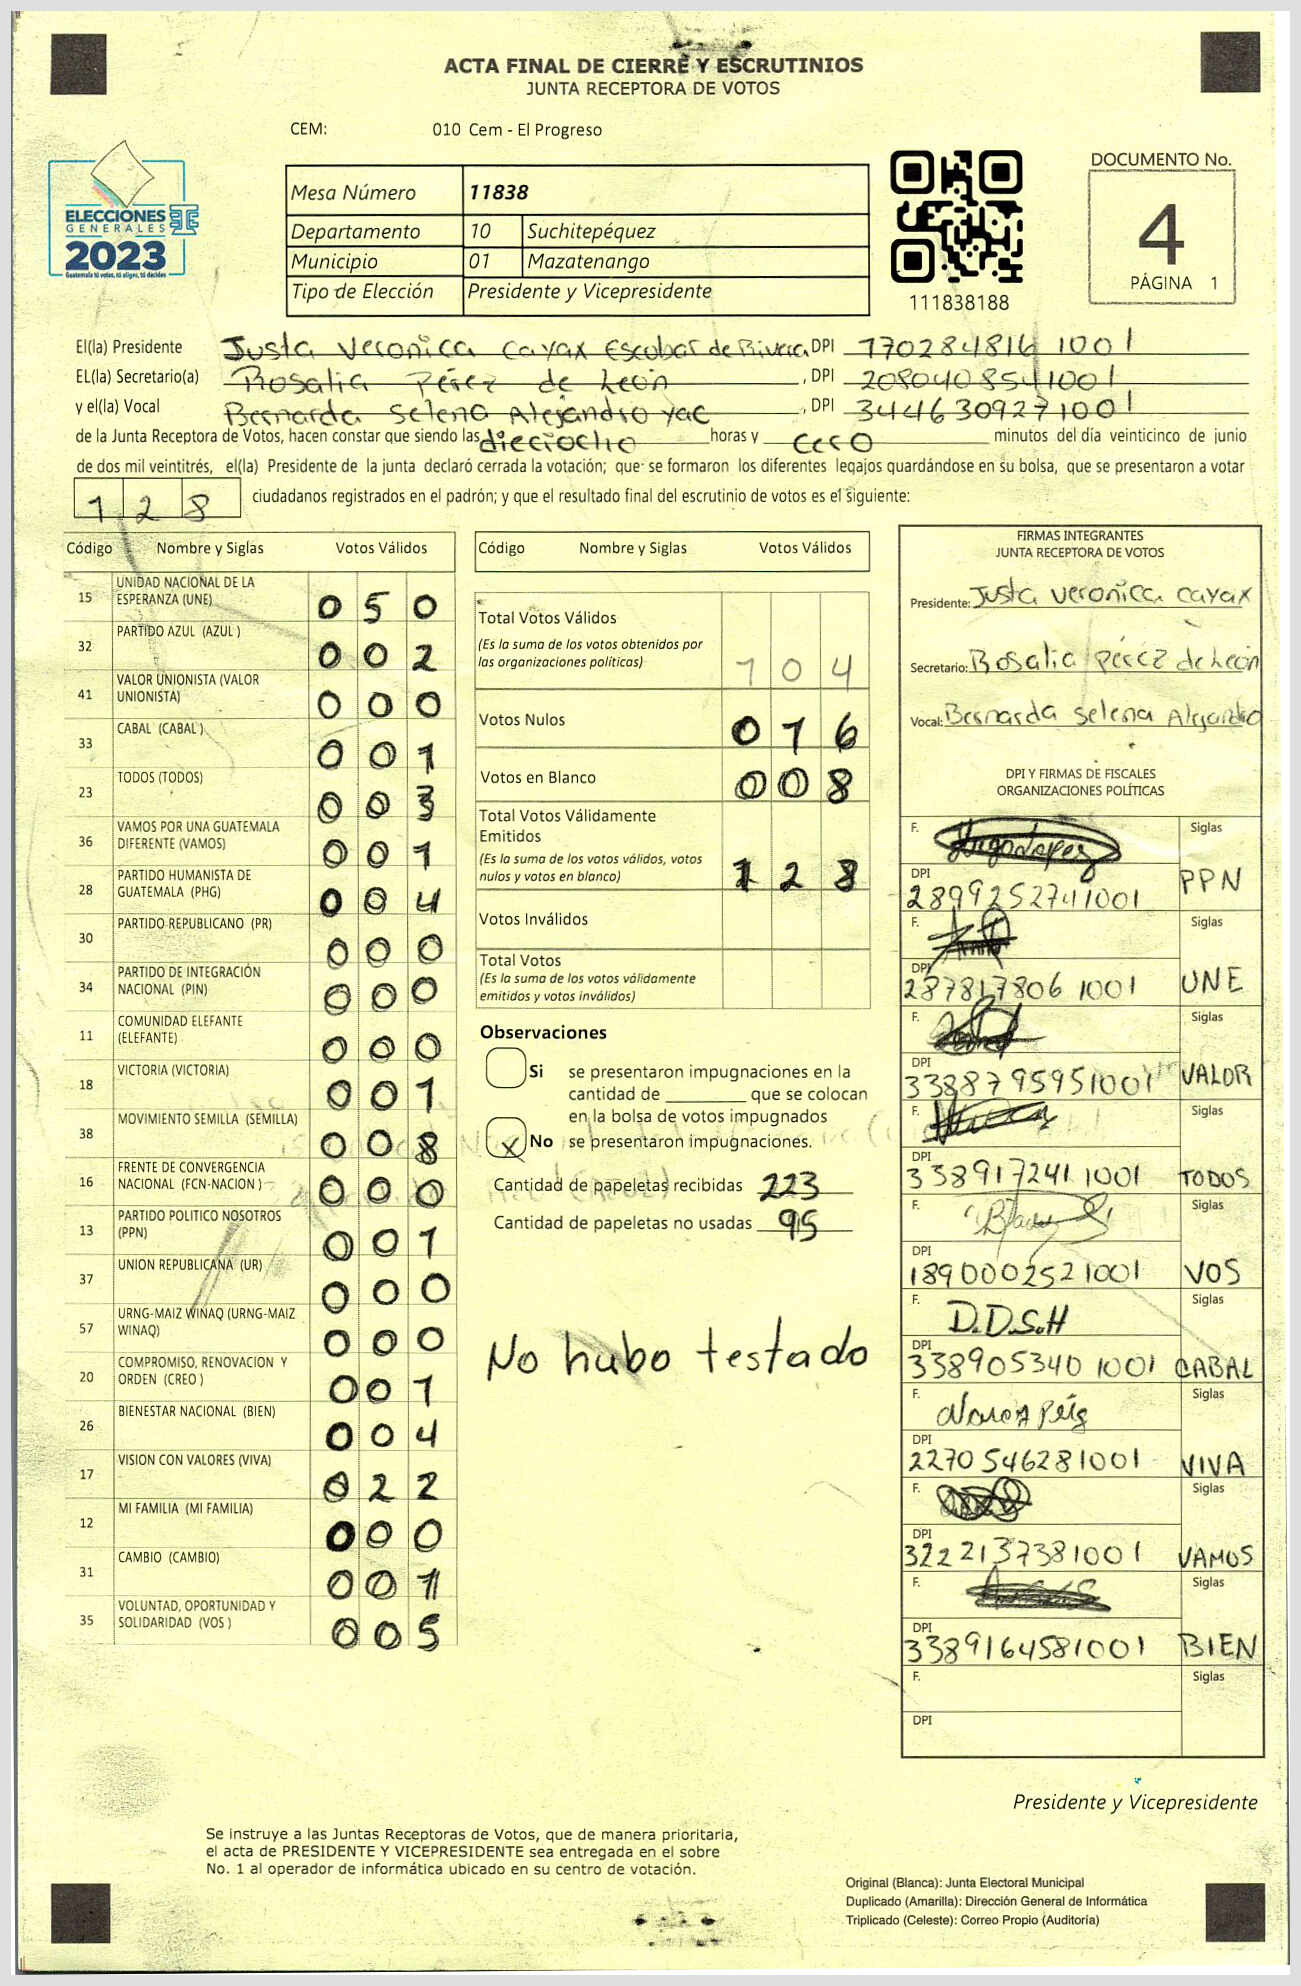 ACTA FINAL DE CIERRE Y ESCRUTINIOS
JUNTA RECEPTORA DE VOTOS
CEM: 010 Cem - El Progreso
ELECCIONES
GENERALES
2023
Guatemala tú votas, tú eliges, tú decides
Mesa Número 11838
Departamento 10 Suchitepéquez
Municipio 01 Mazatenango
Tipo de Elección Presidente y Vicepresidente
111838188
DOCUMENTO No.
4
PÁGINA 1
El(la) Presidente Justa Veronica Cayax Escobar de Rivera DPI 170284816 1001
EL(la) Secretario(a) Rosalia Pérez de León , DPI 2080408541001
y el(la) Vocal Bernarda Selena Alejandro Yac , DPI 34446309271001
de la Junta Receptora de Votos, hacen constar que siendo las dieciocho horas y cero minutos del día veinticinco de junio
de dos mil veintitrés, el(la) Presidente de la junta declaró cerrada la votación; que se formaron los diferentes legajos guardándose en su bolsa, que se presentaron a votar
128 ciudadanos registrados en el padrón; y que el resultado final del escrutinio de votos es el siguiente:
Código Nombre y Siglas Votos Válidos
15 UNIDAD NACIONAL DE LA ESPERANZA (UNE) 050
32 PARTIDO AZUL (AZUL ) 002
41 VALOR UNIONISTA (VALOR UNIONISTA) 000
33 CABAL (CABAL ) 001
23 TODOS (TODOS) 003
36 VAMOS POR UNA GUATEMALA DIFERENTE (VAMOS) 001
28 PARTIDO HUMANISTA DE GUATEMALA (PHG) 004
30 PARTIDO REPUBLICANO (PR) 000
34 PARTIDO DE INTEGRACIÓN NACIONAL (PIN) 000
11 COMUNIDAD ELEFANTE (ELEFANTE) 000
18 VICTORIA (VICTORIA) 001
38 MOVIMIENTO SEMILLA (SEMILLA) 008
16 FRENTE DE CONVERGENCIA NACIONAL (FCN-NACION ) 000
13 PARTIDO POLITICO NOSOTROS (PPN) 001
37 UNION REPUBLICANA (UR) 000
57 URNG-MAIZ WINAQ (URNG-MAIZ WINAQ) 000
20 COMPROMISO, RENOVACION Y ORDEN (CREO ) 001
26 BIENESTAR NACIONAL (BIEN) 004
17 VISION CON VALORES (VIVA) 022
12 MI FAMILIA (MI FAMILIA) 000
31 CAMBIO (CAMBIO) 001
35 VOLUNTAD, OPORTUNIDAD Y SOLIDARIDAD (VOS ) 005
Código Nombre y Siglas Votos Válidos
Total Votos Válidos
(Es la suma de los votos obtenidos por
las organizaciones políticas) 104
Votos Nulos 016
Votos en Blanco 008
Total Votos Válidamente
Emitidos
(Es la suma de los votos válidos, votos
nulos y votos en blanco) 128
Votos Inválidos
Total Votos
(Es la suma de los votos válidamente
emitidos y votos inválidos)
Observaciones
Si se presentaron impugnaciones en la
cantidad de ________ que se colocan
en la bolsa de votos impugnados
X No se presentaron impugnaciones.
Cantidad de papeletas recibidas 223
Cantidad de papeletas no usadas 95
No hubo testado
FIRMAS INTEGRANTES
JUNTA RECEPTORA DE VOTOS
Presidente: Justa Veronica Cayax
Secretario: Rosalia Pérez de León
Vocal: Bernarda Selena Alejandro
DPI Y FIRMAS DE FISCALES
ORGANIZACIONES POLÍTICAS
F. Siglas
DPI 2899252741001 PPN
F. Siglas
DPI 287817806 1001 UNE
F. Siglas
DPI 3388795951001 VALOR
F. Siglas
DPI 338917241 1001 TODOS
F. Siglas
DPI 1890002521001 VOS
F. D.D.S.H Siglas
DPI 338905340 1001 CABAL
F. Siglas
DPI 2270546281001 VIVA
F. Siglas
DPI 3222137381001 VAMOS
F. Siglas
DPI 3389164581001 BIEN
F. Siglas
DPI
Presidente y Vicepresidente
Se instruye a las Juntas Receptoras de Votos, que de manera prioritaria,
el acta de PRESIDENTE Y VICEPRESIDENTE sea entregada en el sobre
No. 1 al operador de informática ubicado en su centro de votación.
Original (Blanca): Junta Electoral Municipal
Duplicado (Amarilla): Dirección General de Informática
Triplicado (Celeste): Correo Propio (Auditoría)